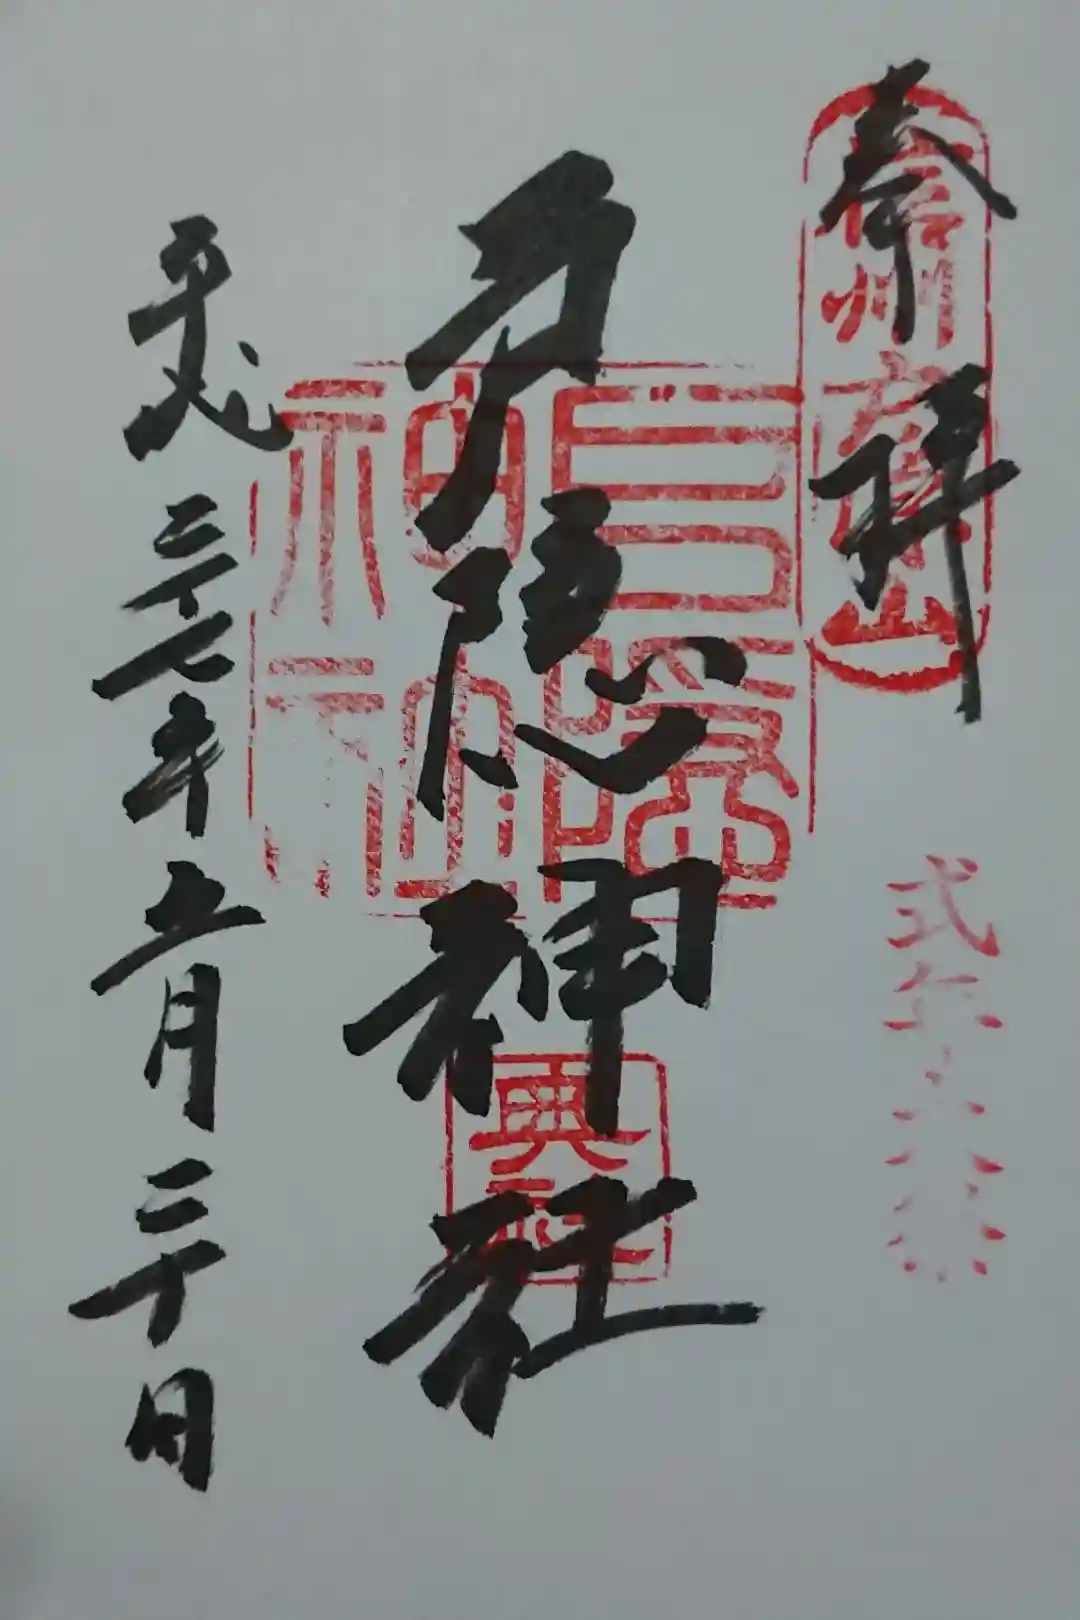 奉拝
信州戸隠山
式年大祭
戸隠神社
戸隠神社
奥社
平成二十七年五月二十日